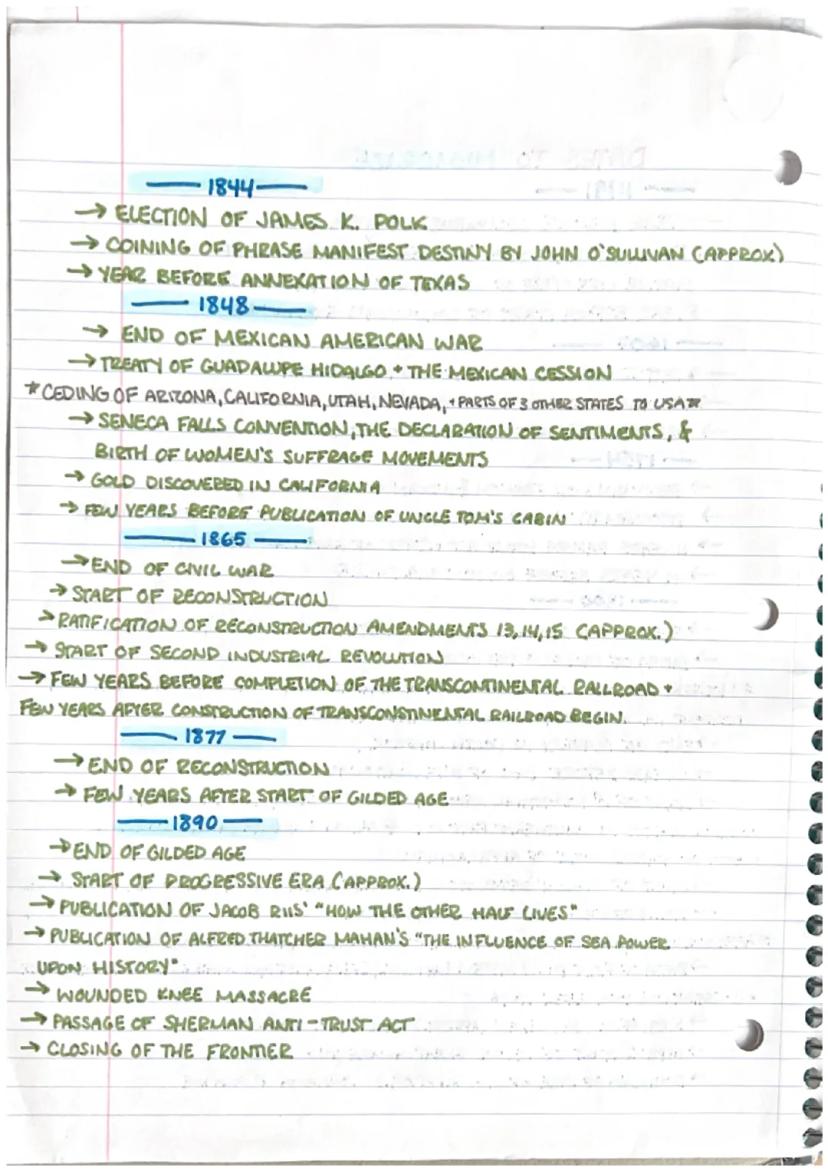 1844
→ ELECTION OF JAMES K. POLK
→ COINING OF PHRASE MANIFEST DESTINY BY JOHN O'SULLIVAN (APPROX)
→ YEAR BEFORE ANNEXATION OF TEXAS
1848
→ END OF MEXICAN AMERICAN WAR
→ TREATY OF GUADALUPE HIDALGO + THE MEXICAN CESSION
*CEDING OF ARIZONA, CALIFORNIA, UTAH, NEVADA, + PARTS OF 3 OTHER STATES TO USA*
→ SENECA FALLS CONVENTION, THE DECLARATION OF SENTIMENTS, &
BIRTH OF WOMEN'S SUFFRAGE MOVEMENTS
→ GOLD DISCOVERED IN CALIFORNIA
→ FEW YEARS BEFORE PUBLICATION OF UNCLE TOM'S CABIN
1865
→ END OF CIVIL WAR
→ START OF RECONSTRUCTION
→ RATIFICATION OF RECONSTRUCTION AMENDMENTS 13, 14, 15 (APPROX.)
→ START OF SECOND INDUSTRIAL REVOLUTION
→ FEW YEARS BEFORE COMPLETION OF THE TRANSCONTINENTAL RAILROAD +
FEW YEARS AFTER CONSTRUCTION OF TRANSCONSTINENTAL RAILROAD BEGIN.
1877
→ END OF RECONSTRUCTION
→ FEW YEARS AFTER START OF GILDED AGE
1890
→ END OF GILDED AGE
→ START OF PROGRESSIVE ERA (APPROX.)
→ PUBLICATION OF JACOB RIIS' "HOW THE OTHER HALF LIVES"
→ PUBLICATION OF ALFRED THATCHER MAHAN'S "THE INFLUENCE OF SEA POWER
UPON HISTORY"
→ WOUNDED KNEE MASSACRE
→ PASSAGE OF SHERMAN ANTI-TRUST ACT
→ CLOSING OF THE FRONTIER